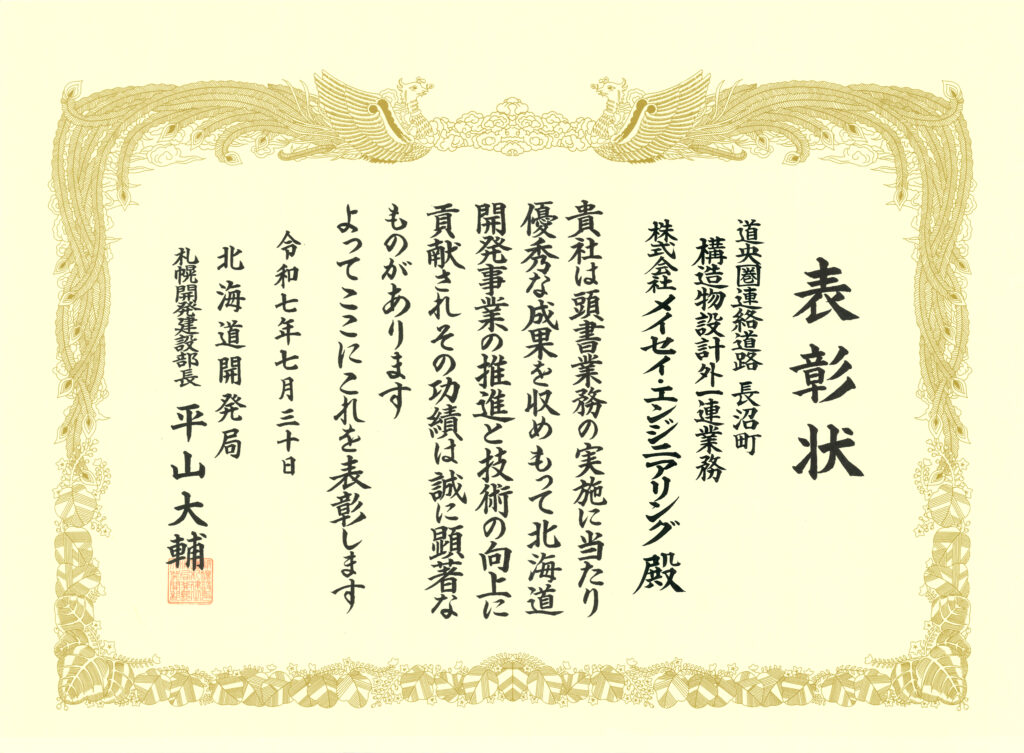 表彰状
道央圏連絡道路 長沼町
構造物設計外一連業務
株式会社メイセイ・エンジニアリング 殿
貴社は頭書業務の実施に当たり
優秀な成果を収めもって北海道
開発事業の推進と技術の向上に
貢献されその功績は誠に顕著な
ものがあります
よってここにこれを表彰します
令和七年七月三十日
北海道開発局
札幌開発建設部長 平山大輔